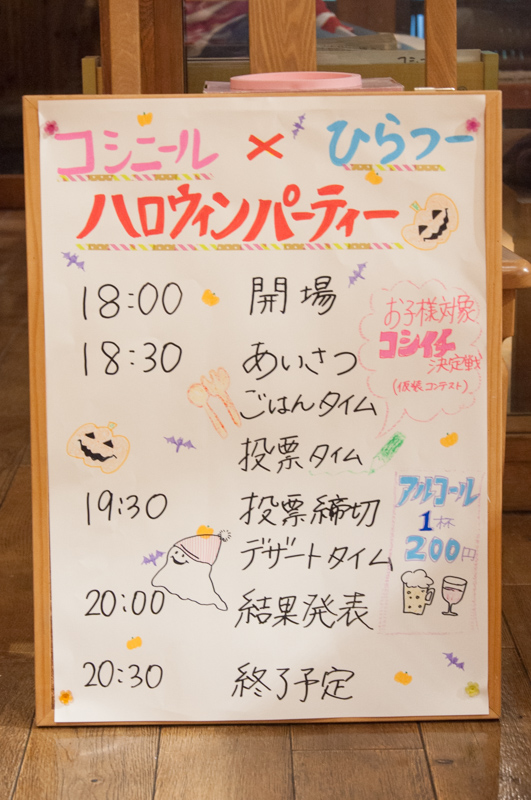 コシニール × ひらつー
ハロウィンパーティー
18:00 開場
18:30 あいさつ
ごはんタイム
投票タイム
19:30 投票締切
デザートタイム
20:00 結果発表
20:30 終了予定
お子様対象
コシイチ
決定戦
(仮装コンテスト)
アルコール
1杯
200円